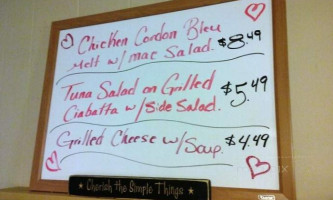 Chicken Cordon Bleu
Melt w/ mac Salad. $8.49
Tuna Salad on Grilled
Ciabatta w/ Side Salad. $5.49
Grilled Cheese w/ Soup. $4.49
Cherish the Simple Things